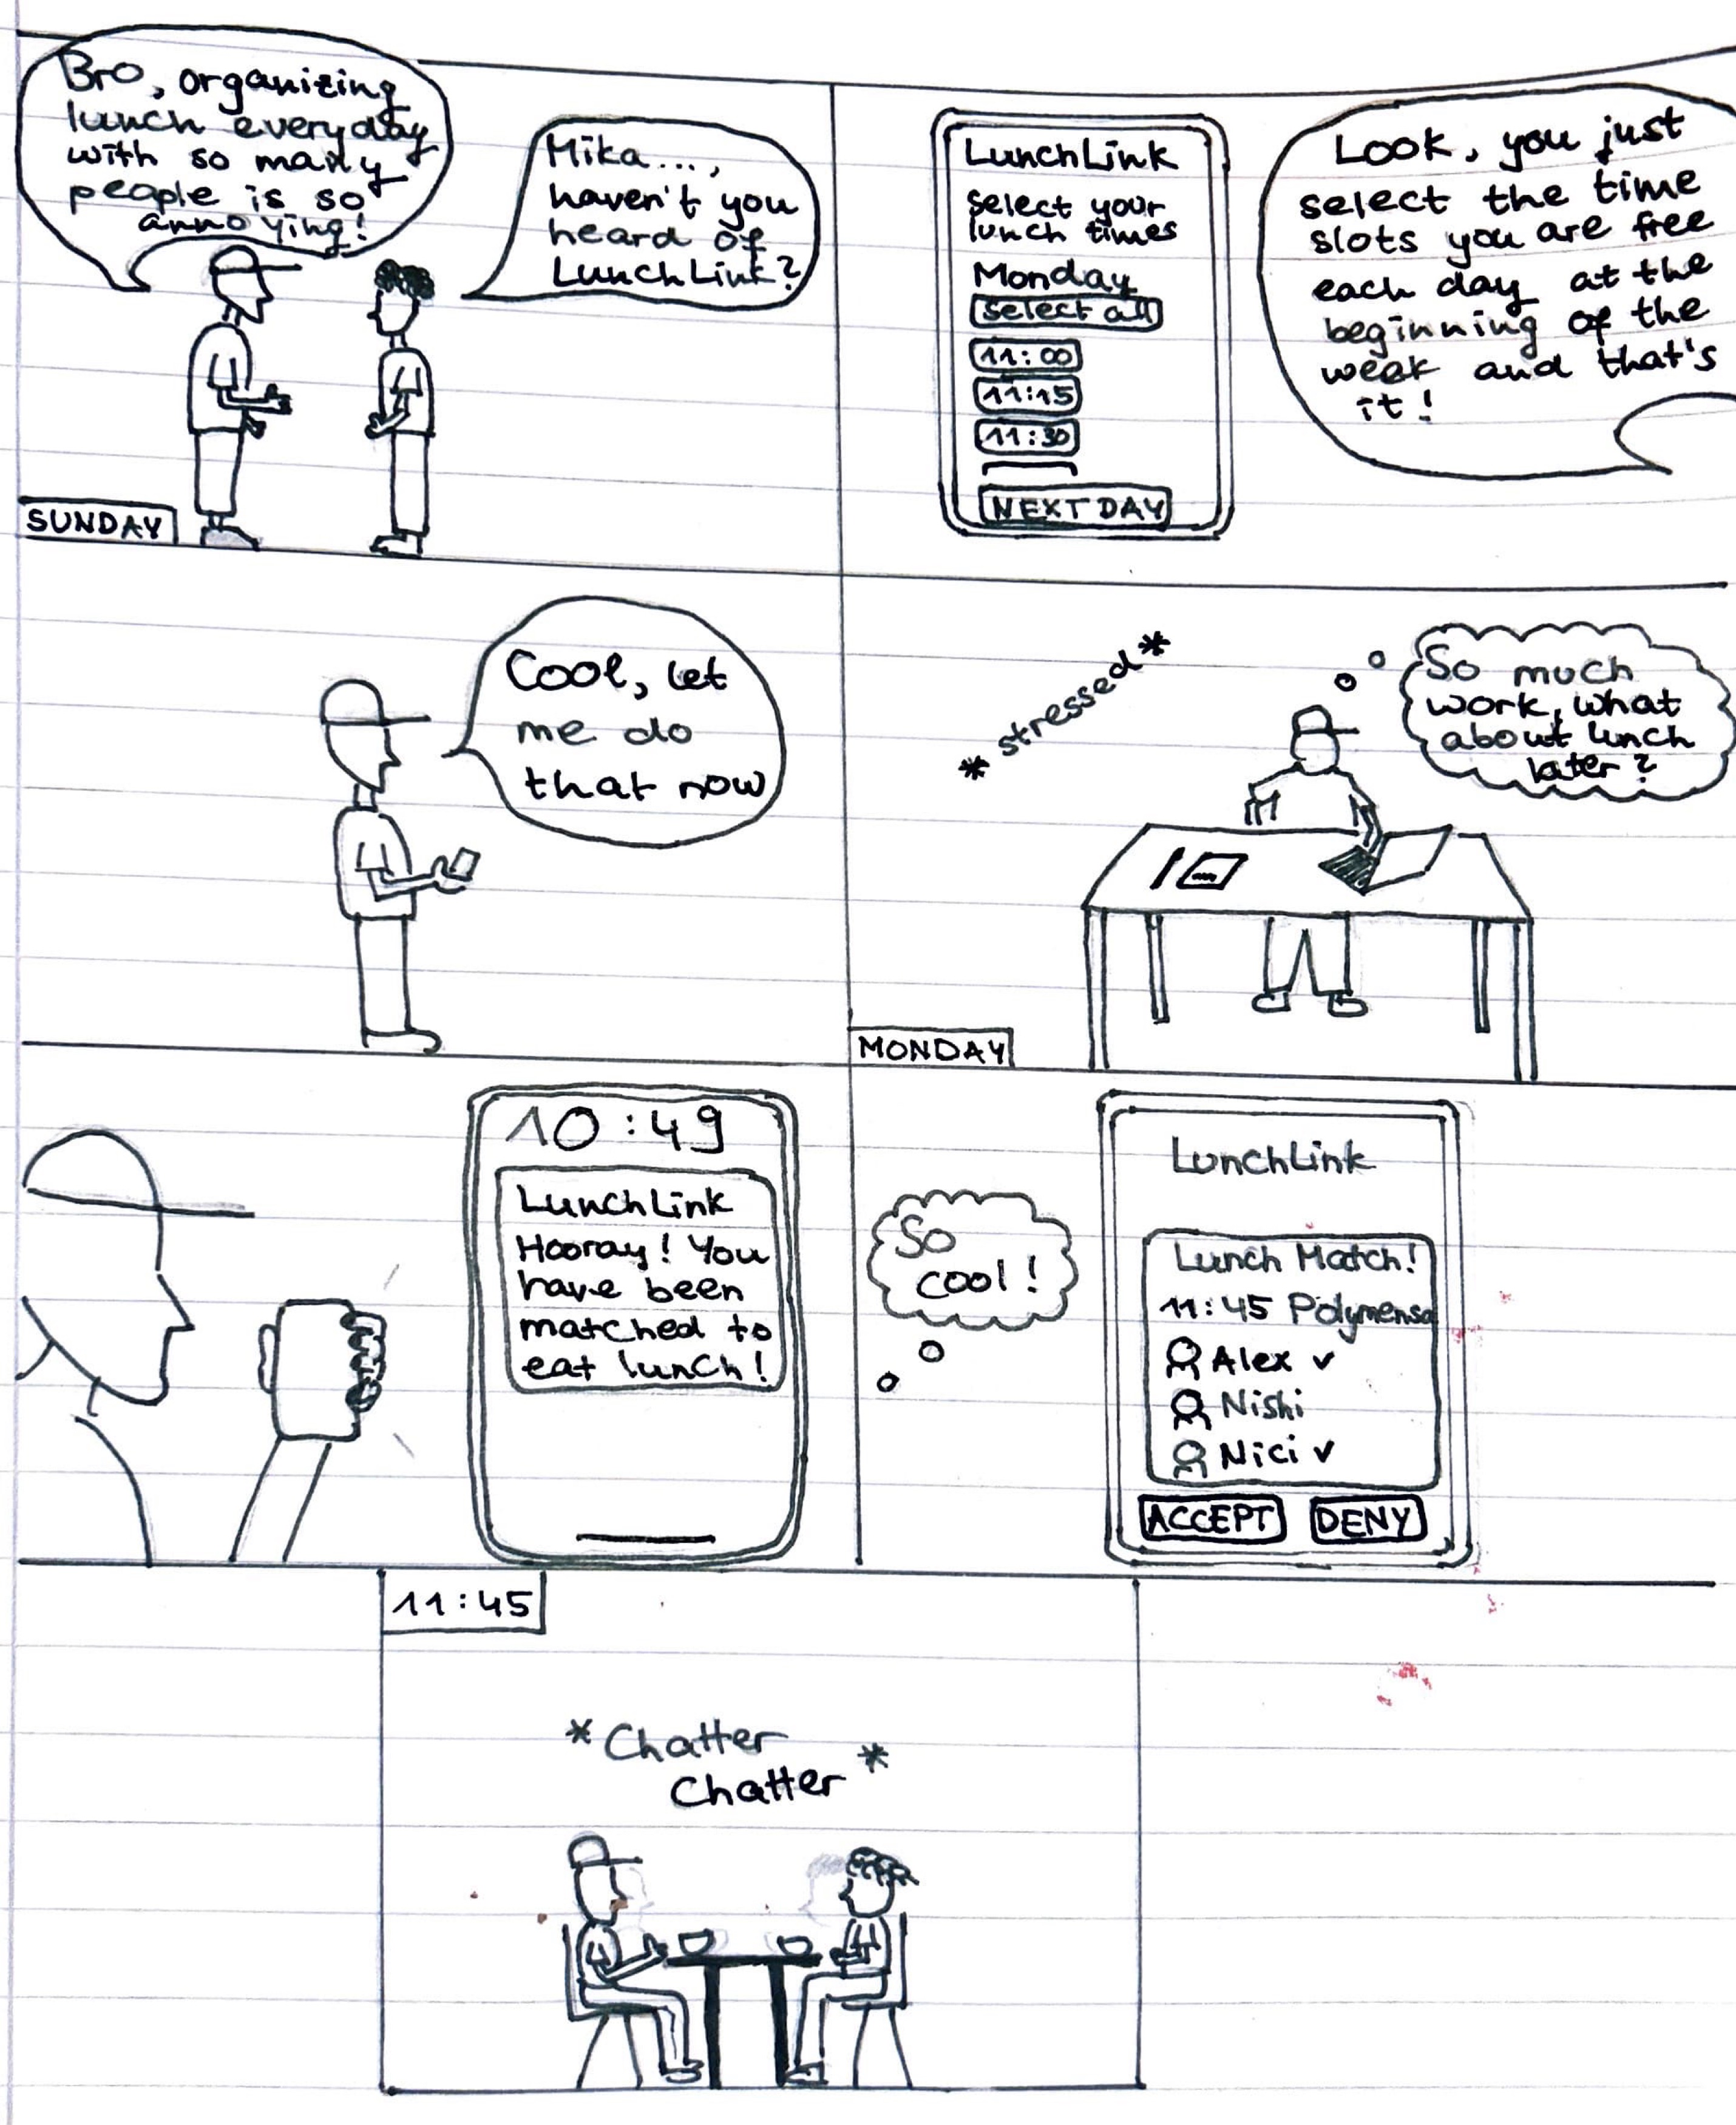 Bro, organizing
lunch everyday
with so many
people is so
annoying!
Mika...,
haven't you
heard of
LunchLink?
SUNDAY
LunchLink
select your
lunch times
Monday
select all
11:00
11:15
11:30
NEXT DAY
Look, you just
select the time
slots you are free
each day at the
beginning of the
week and that's
it!
Cool, let
me do
that now
*stressed*
So much
work, what
about lunch
later?
MONDAY
10:49
LunchLink
Hooray! You
have been
matched to
eat lunch!
So
cool!
LunchLink
Lunch Match!
11:45 Polymensa
Alex ✓
Nishi
Nici ✓
ACCEPT DENY
11:45
*Chatter
Chatter*